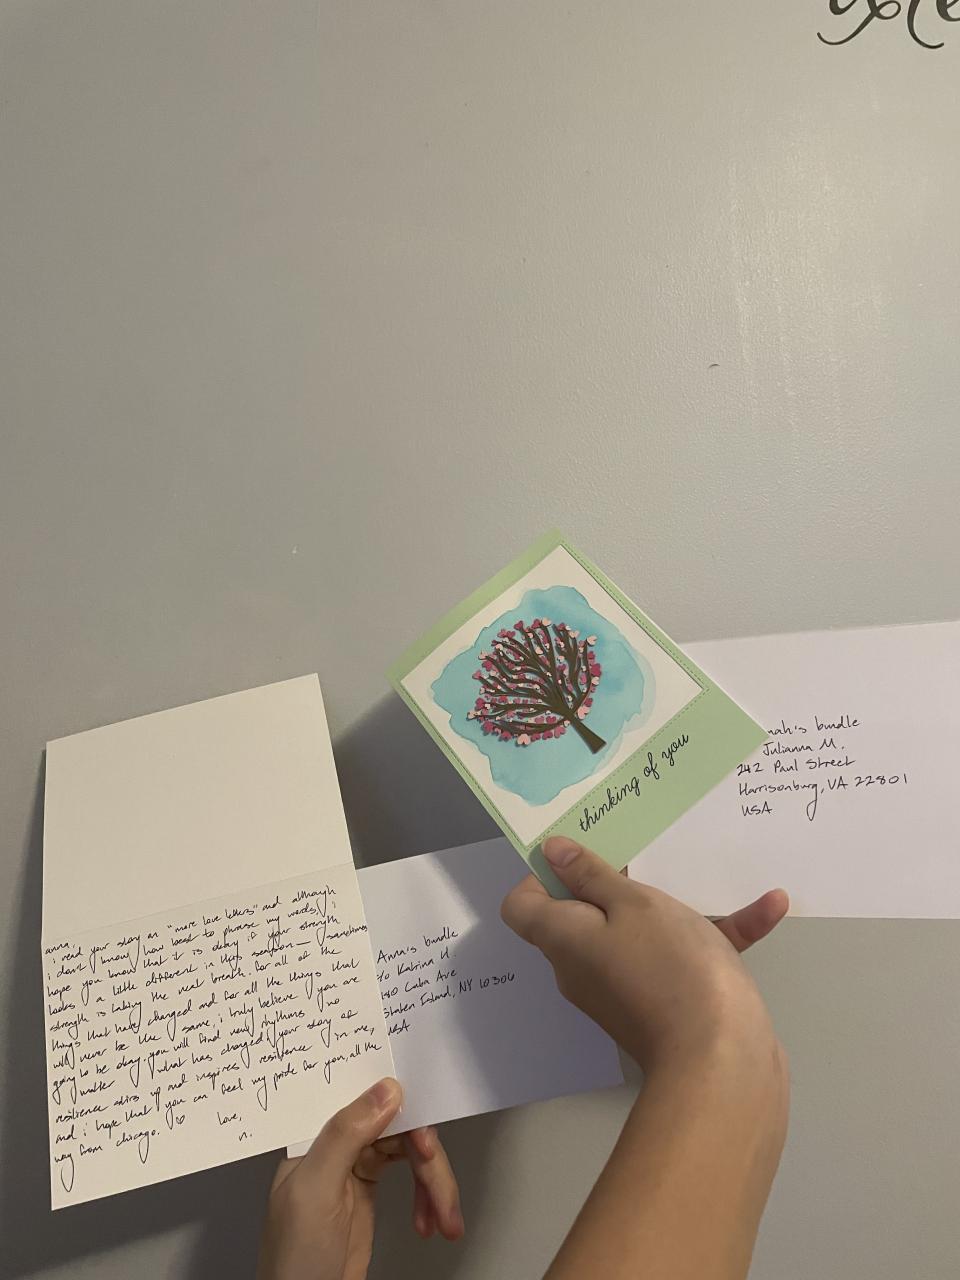 anna,
i read your story on "more love letters" and although
i don't know how best to phrase my words, i
hope you know that it is okay if your strength
looks a little different in this season— sometimes
strength is taking the next breath. for all of the
things that have changed and for all the things that
will never be the same, i truly believe you are
going to be okay. you will find new rhythms no
matter what has changed. your story of
resilience stirs up and inspires resilience in me,
and i hope that you can feel my pride for you, all the
way from chicago. ♡
love,
n.
Anna's bundle
c/o Katrina H.
Cuba Ave
Staten Island, NY 10306
USA
thinking of you
nah's bundle
Julianna M.
242 Paul Street
Harrisonburg, VA 22801
USA